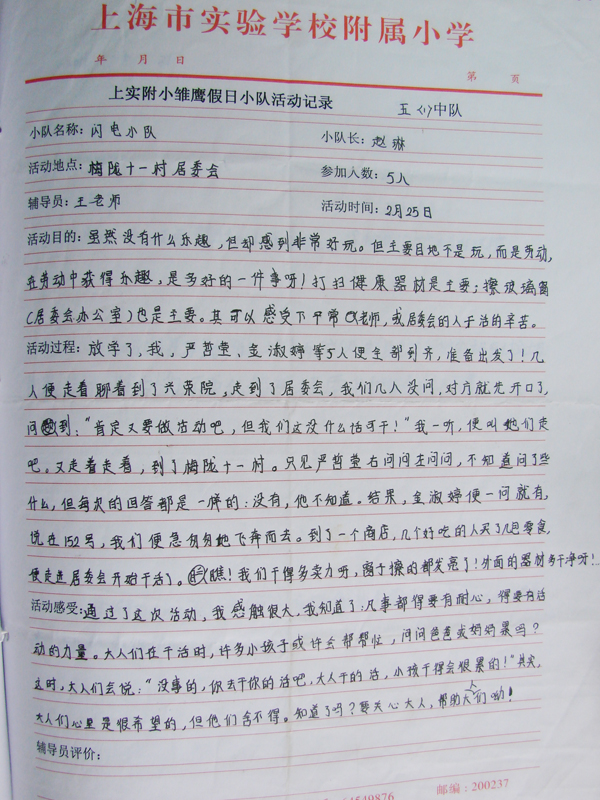 上海市实验学校附属小学
年 月 日
第 页
上实附小雏鹰假日小队活动记录 五(1)中队
小队名称: 闪电小队 小队长: 赵琳
活动地点: 梅陇十一村居委会 参加人数: 5人
辅导员: 王老师 活动时间: 2月25日
活动目的: 虽然没有什么乐趣,但却感到非常好玩。但主要目地不是玩,而是劳动,
在劳动中获得乐趣,是多好的一件事呀!打扫健康器材是主要;擦玻璃窗
(居委会办公室)也是主要。其可以感受下平常老师,或居委会的人干活的辛苦。
活动过程: 放学了,我,严哲莹、金淑婷等5人便全部到齐,准备出发了!几
人便走着聊着到了兴荣院,走到了居委会,我们几人没问,对方就先开口了,
问到:“肯定又要做活动吧,但我们这没什么活可干!”我一听,便叫她们走
吧。又走着走着,到了梅陇十一村。只见严哲莹右问问左问问,不知道问了些
什么,但每次的回答都是一样的:没有,他不知道。结果,金淑婷便一问就有,
说在152号,我们便急匆匆地飞奔而去。到了一个商店,几个好吃的人买了几包零食,
便走进居委会开始干活了。瞧!我们干得多卖力呀,窗子擦的都发亮了!外面的器材多干净呀!
活动感受: 通过了这次活动,我感触很大,我知道了:凡事都得要有耐心,得要有活
动的力量。大人们在干活时,许多小孩子或许会帮帮忙,问问爸爸或妈妈累吗?
这时,大人们会说:“没事的,你去干你的活吧,大人干的活,小孩干得会很累的!”其实,
大人们心里是很希望的,但他们舍不得。知道了吗?要关心大人,帮助大人们呦!
辅导员评价:
4549876 邮编:200237